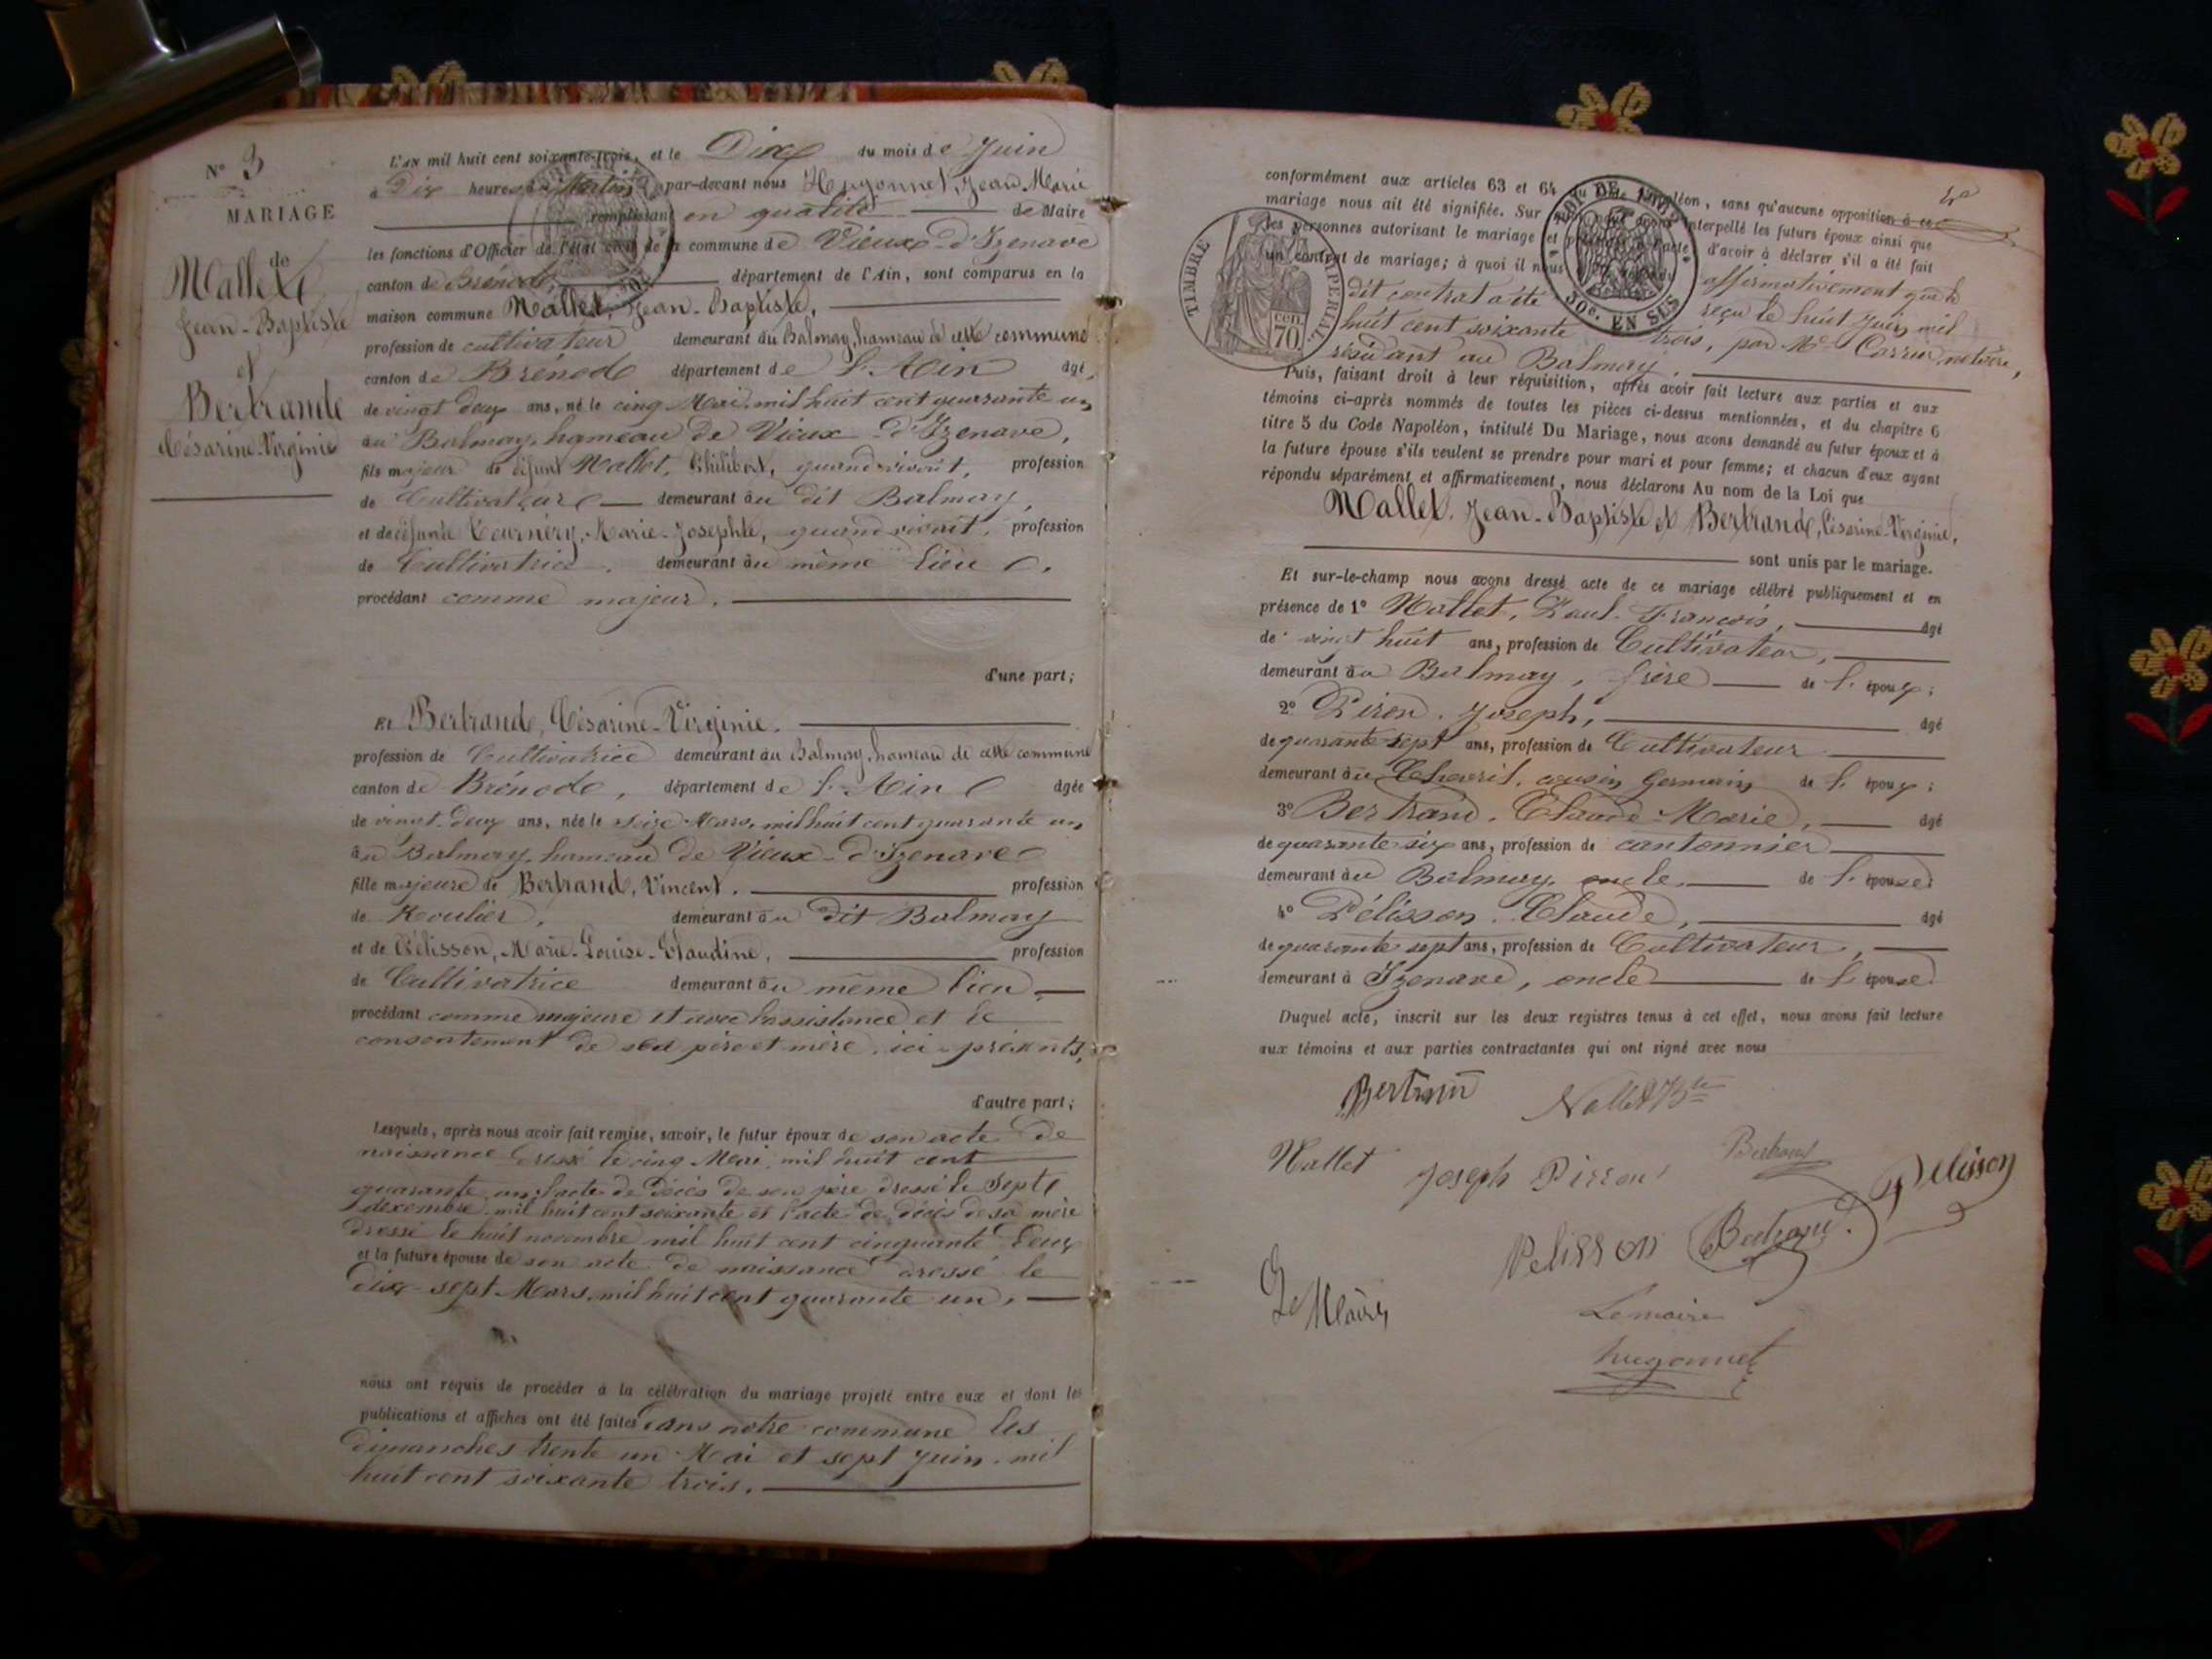 N° 3
MARIAGE
de
Mallet
Jean-Baptiste
et
Bertrand
Césarine-Virginie
L'an mil huit cent soixante-trois, et le Dix du mois de Juin
à Dix heures du Matin par-devant nous Hugonnet, Jean Marie
remplissant en qualité de Maire
les fonctions d'Officier de l'état civil de la commune de Vieux-d'Izenave
canton de Brénod, département de l'Ain, sont comparus en la
maison commune Mallet, Jean-Baptiste,
profession de cultivateur demeurant au Balmay, hameau de cette commune
canton de Brénod département de l'Ain âgé
de vingt deux ans, né le cinq Mai mil huit cent quarante un
au Balmay, hameau de Vieux-d'Izenave,
fils majeur de défunt Mallet, Philibert, quand vivait, profession
de Cultivateur demeurant au dit Balmay,
et de défunte Marie-Josephte, quand vivait, profession
de Cultivatrice demeurant au même lieu.
procédant comme majeur.
d'une part;
Et Bertrand, Césarine-Virginie.
profession de Cultivatrice demeurant au Balmay, hameau de cette commune
canton de Brénod, département de l'Ain âgée
de vingt-deux ans, née le seize Mars, mil huit cent quarante un
au Balmay, hameau de Vieux-d'Izenave
fille majeure de Bertrand, Vincent. profession
de demeurant au dit Balmay
et de Pélisson, Marie-Louise-Claudine, profession
de Cultivatrice demeurant au même lieu
procédant comme majeure et avec l'assistance et le
consentement de ses père et mère, ici présents,
d'autre part;
Lesquels, après nous avoir fait remise, savoir, le futur époux de son acte de
naissance dressé le cinq Mai, mil huit cent
quarante un, l'acte de décès de son père dressé le sept
décembre mil huit cent soixante et l'acte de décès de sa mère
dressé le huit novembre mil huit cent cinquante deux
et la future épouse de son acte de naissance dressé le
dix-sept Mars, mil huit cent quarante un,
nous ont requis de procéder à la célébration du mariage projeté entre eux et dont les
publications et affiches ont été faites dans notre commune les
dimanches trente un Mai et sept Juin mil
huit cent soixante trois.
conformément aux articles 63 et 64 du Code Napoléon, sans qu'aucune opposition à ce
mariage nous ait été signifiée. Sur quoi nous avons interpellé les futurs époux ainsi que
les personnes autorisant le mariage et présentes à l'acte d'avoir à déclarer s'il a été fait
un contrat de mariage; à quoi il nous a été répondu affirmativement que le
dit contrat a été reçu le huit Juin mil
huit cent soixante trois, par Me notaire,
résidant au Balmay.
TIMBRE IMPÉRIAL
70 cen.
LOI DE 1862
50c. EN SUS
Puis, faisant droit à leur réquisition, après avoir fait lecture aux parties et aux
témoins ci-après nommés de toutes les pièces ci-dessus mentionnées, et du chapitre 6
titre 5 du Code Napoléon, intitulé Du Mariage, nous avons demandé au futur époux et à
la future épouse s'ils veulent se prendre pour mari et pour femme; et chacun d'eux ayant
répondu séparément et affirmativement, nous déclarons Au nom de la Loi que
Mallet. Jean-Baptiste et Bertrand, Césarine-Virginie,
sont unis par le mariage.
Et sur-le-champ nous avons dressé acte de ce mariage célébré publiquement et en
présence de 1° Mallet, Paul-François, âgé
de vingt huit ans, profession de Cultivateur,
demeurant au Balmay, frère de l'époux;
2° Piron, Joseph, âgé
de quarante sept ans, profession de Cultivateur
demeurant au cousin Germain de l'époux;
3° Bertrand, Claude-Marie, âgé
de quarante six ans, profession de cantonnier
demeurant au Balmay, oncle de l'épouse
4° Pélisson. Claude, âgé
de quarante sept ans, profession de Cultivateur,
demeurant à Izenave, oncle de l'épouse
Duquel acte, inscrit sur les deux registres tenus à cet effet, nous avons fait lecture
aux témoins et aux parties contractantes qui ont signé avec nous
Bertrand Mallet Bte
Mallet Joseph Pirron Bertrand Pelisson
Pelisson Bertrand
Le Maire
Le maire
hugonnet